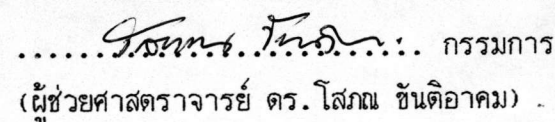 กรรมการ
(ผู้ช่วยศาสตราจารย์ ดร.โสภณ ขันติอาคม)